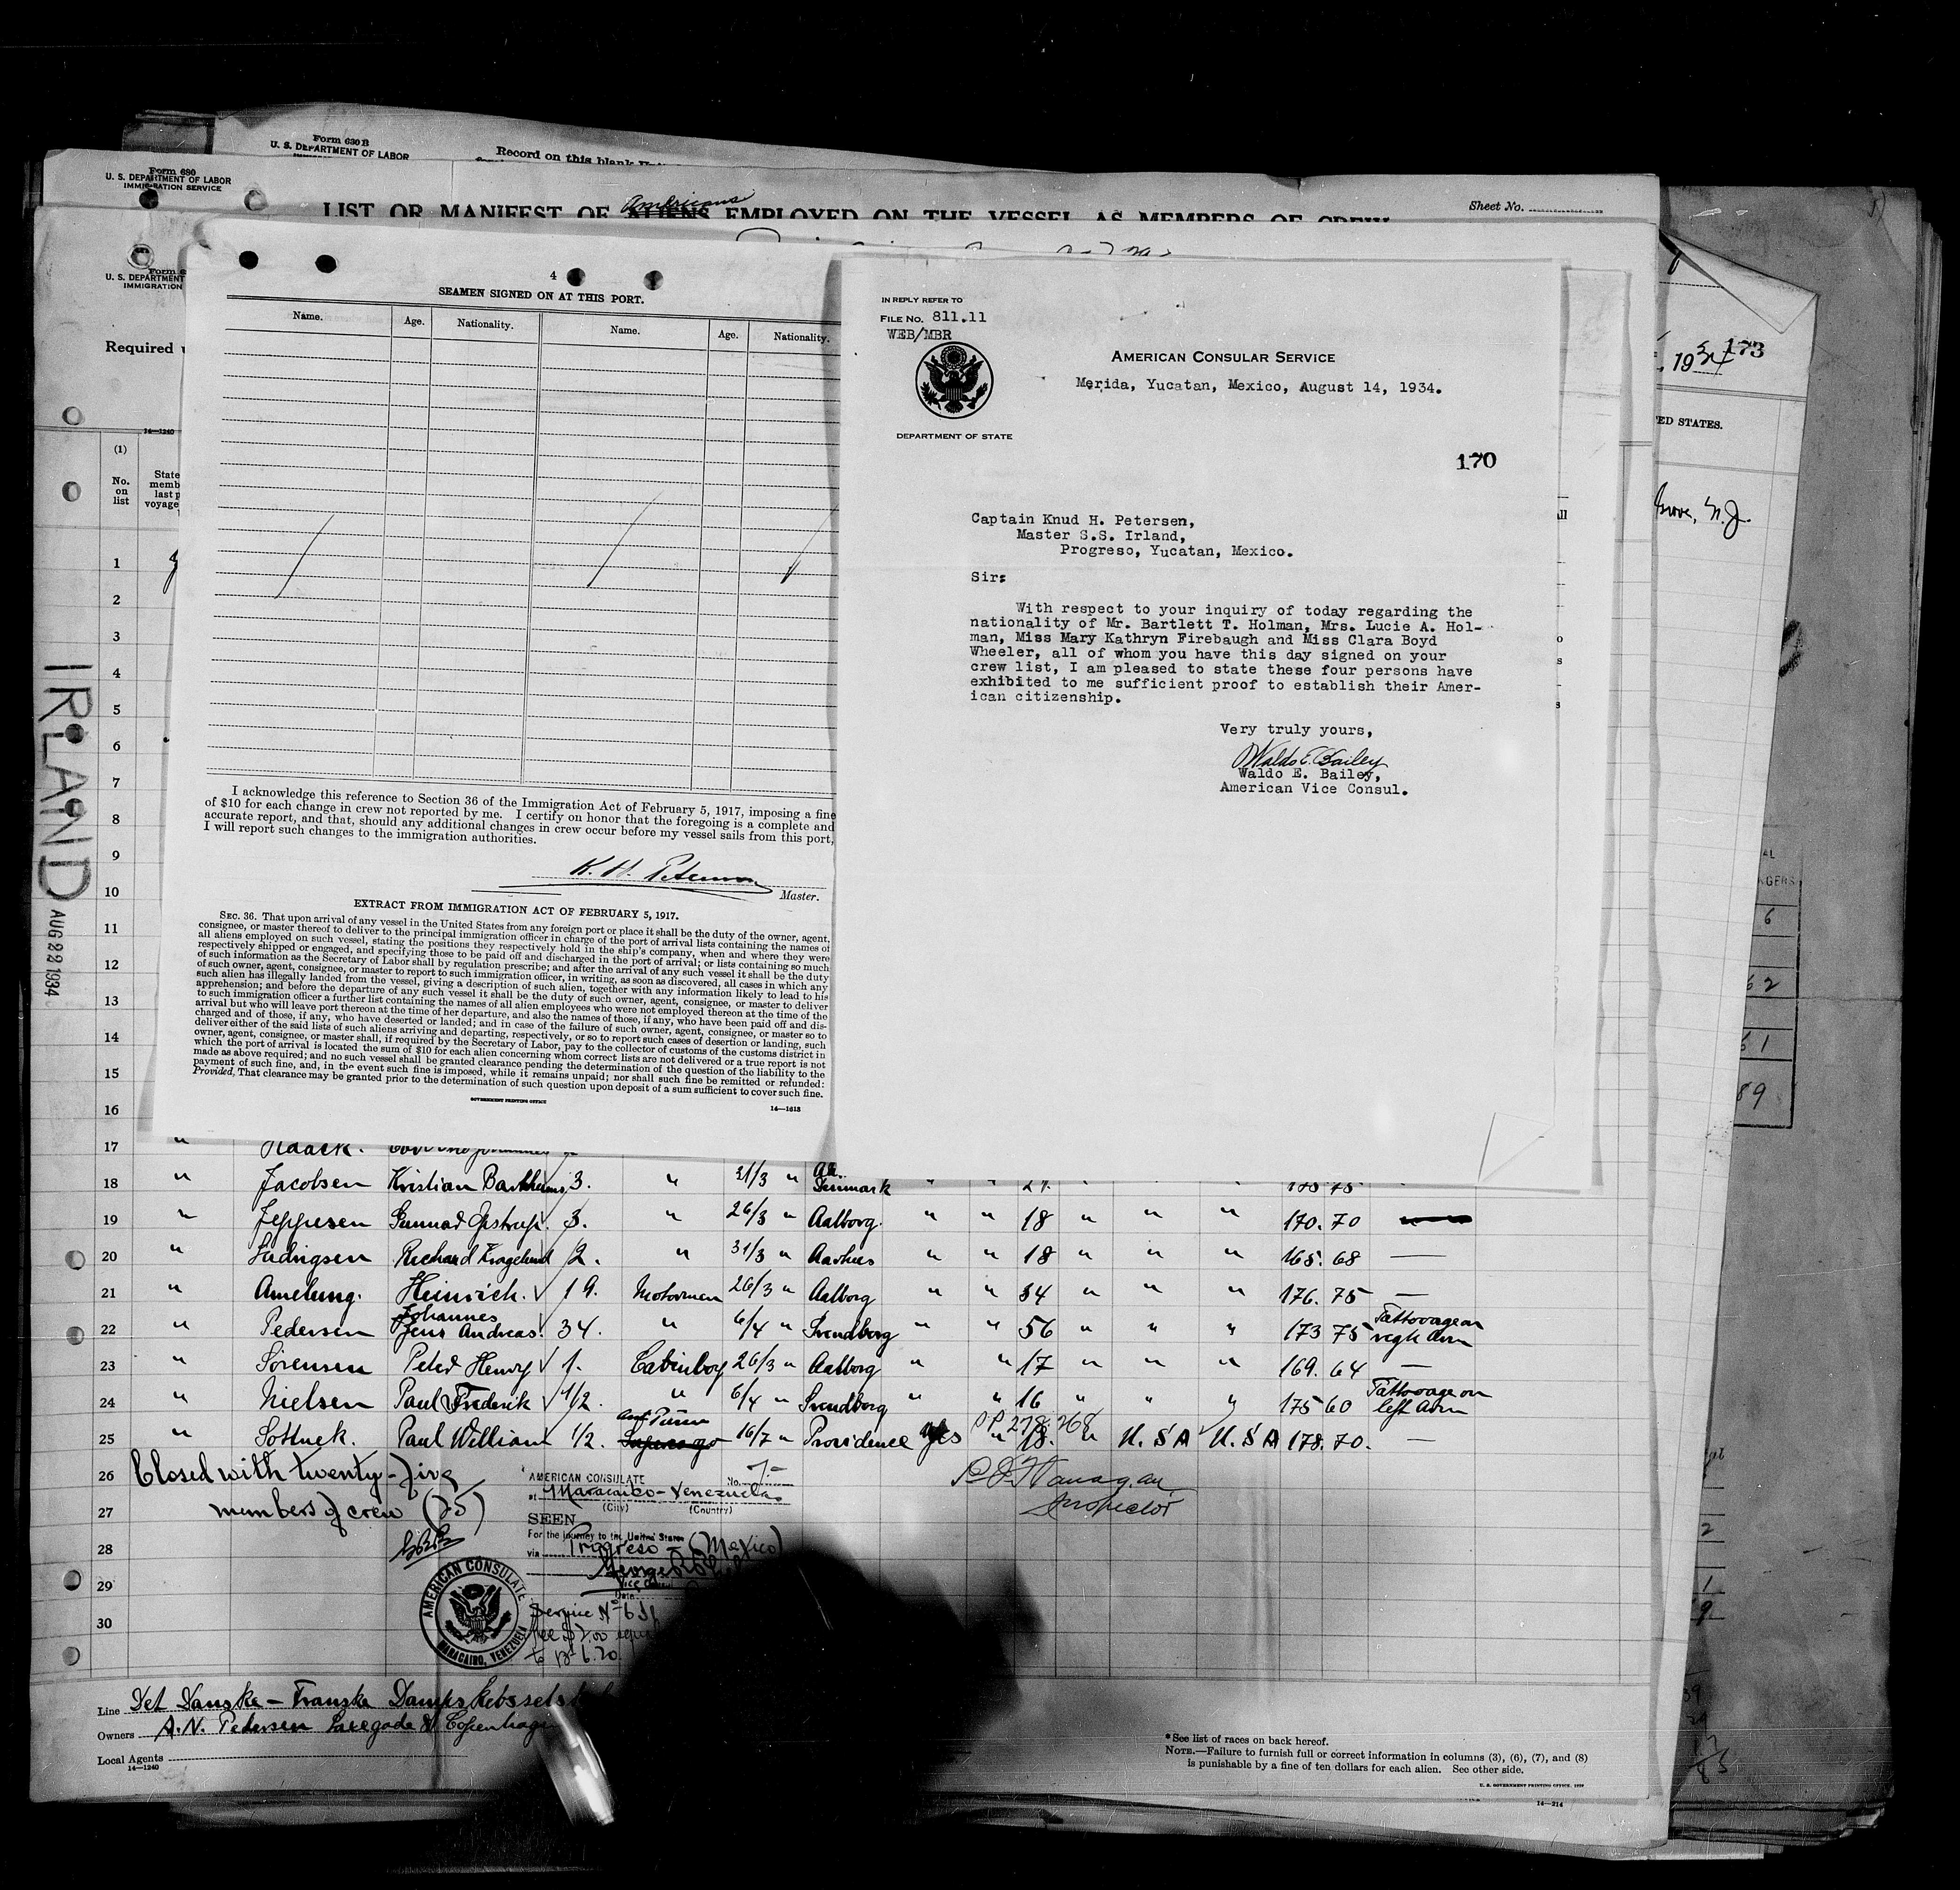 Form 630 B
U. S. DEPARTMENT OF LABOR
Record on this blank
Form 680
U. S. DEPARTMENT OF LABOR
IMMIGRATION SERVICE
Americans
LIST OR MANIFEST OF ALIENS EMPLOYED ON THE VESSEL AS MEMBERS OF CREW
Sheet No.
U. S. DEPARTMENT
IMMIGRATION
Required
14—1240
(1)
No.
on
list
State
memb
last p
voyage
4
SEAMEN SIGNED ON AT THIS PORT.
Name. Age. Nationality. Name. Age. Nationality.
I acknowledge this reference to Section 36 of the Immigration Act of February 5, 1917, imposing a fine
of $10 for each change in crew not reported by me. I certify on honor that the foregoing is a complete and
accurate report, and that, should any additional changes in crew occur before my vessel sails from this port,
I will report such changes to the immigration authorities.
K. H. Petersen
Master.
EXTRACT FROM IMMIGRATION ACT OF FEBRUARY 5, 1917.
SEC. 36. That upon arrival of any vessel in the United States from any foreign port or place it shall be the duty of the owner, agent,
consignee, or master thereof to deliver to the principal immigration officer in charge of the port of arrival lists containing the names of
all aliens employed on such vessel, stating the positions they respectively hold in the ship's company, when and where they were
respectively shipped or engaged, and specifying those to be paid off and discharged in the port of arrival; or lists containing so much
of such information as the Secretary of Labor shall by regulation prescribe; and after the arrival of any such vessel it shall be the duty
of such owner, agent, consignee, or master to report to such immigration officer, in writing, as soon as discovered, all cases in which any
such alien has illegally landed from the vessel, giving a description of such alien, together with any information likely to lead to his
apprehension; and before the departure of any such vessel it shall be the duty of such owner, agent, consignee, or master to deliver
to such immigration officer a further list containing the names of all alien employees who were not employed thereon at the time of the
arrival but who will leave port thereon at the time of her departure, and also the names of those, if any, who have been paid off and dis-
charged and of those, if any, who have deserted or landed; and in case of the failure of such owner, agent, consignee, or master so to
deliver either of the said lists of such aliens arriving and departing, respectively, or so to report such cases of desertion or landing, such
owner, agent, consignee, or master shall, if required by the Secretary of Labor, pay to the collector of customs of the customs district in
which the port of arrival is located the sum of $10 for each alien concerning whom correct lists are not delivered or a true report is not
made as above required; and no such vessel shall be granted clearance pending the determination of the question of the liability to the
payment of such fine, and, in the event such fine is imposed, while it remains unpaid; nor shall such fine be remitted or refunded:
Provided, That clearance may be granted prior to the determination of such question upon deposit of a sum sufficient to cover such fine.
GOVERNMENT PRINTING OFFICE
14—1613
IN REPLY REFER TO
FILE NO. 811.11
WEB/MBR
AMERICAN CONSULAR SERVICE
Merida, Yucatan, Mexico, August 14, 1934.
DEPARTMENT OF STATE
170
Captain Knud H. Petersen,
Master S.S. Irland,
Progreso, Yucatan, Mexico.
Sir:
With respect to your inquiry of today regarding the
nationality of Mr. Bartlett T. Holman, Mrs. Lucie A. Hol-
man, Miss Mary Kathryn Firebaugh and Miss Clara Boyd
Wheeler, all of whom you have this day signed on your
crew list, I am pleased to state these four persons have
exhibited to me sufficient proof to establish their Amer-
ican citizenship.
Very truly yours,
Waldo E. Bailey
Waldo E. Bailey,
American Vice Consul.
1934
173
ED STATES.
N. J.
62
61
89
IRLAND
AUG 22 1934
1
2
3
4
5
6
7
8
9
10
11
12
13
14
15
16
17 " Haack.
18 " Jacobsen Kristian 3. " 31/3 " Denmark " " 21. " " " 175 75
19 " Jeppesen Gunnar 3. " 26/3 " Aalborg. " " 18 " " " 170. 70
20 " Ludvigsen Richard 2. " 31/3 " Aarhus " " 18 " " " 165. 68 —
21 " Amelung. Heinrich. 19. Motorman 26/3 " Aalborg " " 54 " " " 176. 75 —
22 " Pedersen Johannes Jens Andreas. 34. " 6/4 " Svendborg " " 56 " " " 173 75 Tattooage on right Arm
23 " Sörensen Peter Henry 1. Cabinboy 26/3 " Aalborg " " 17 " " " 169. 64 —
24 " Nielsen Paul Frederik 1/2. " 6/4 " Svendborg " " 16 " " " 175 60 Tattooage on left Arm
25 " Paul William 1/2. Supercargo 16/7 " Providence yes " 18. " U. S A U. S A 178. 70. —
PP 278 268
26 Closed with twenty-five
27 members of crew (25)
28
29
30
Inspector
AMERICAN CONSULATE
No. 7
at Maracaibo - Venezuela
(City) (Country)
SEEN
For the journey to the United States
via Progreso - (Mexico)
Vice Consul
Date
Service No
fee $2.00 equal
to
AMERICAN CONSULATE
MARACAIBO, VENEZUELA
Line Det Danske - Franske Dampskibsselsk
Owners A. N. Petersen 8 Copenhagen
Local Agents
14—1240
*See list of races on back hereof.
NOTE.—Failure to furnish full or correct information in columns (3), (6), (7), and (8)
is punishable by a fine of ten dollars for each alien. See other side.
U. S. GOVERNMENT PRINTING OFFICE
14—214